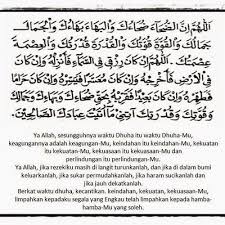 اَللّٰهُمَّ اِنَّ الضُّحَآءَ ضُحَاءُكَ وَالْبَهَاءَ بَهَاءُكَ وَالْجَمَالَ
جَمَالُكَ وَالْقُوَّةَ قُوَّتُكَ وَالْقُدْرَةَ قُدْرَتُكَ وَالْعِصْمَةَ
عِصْمَتُكَ اَللّٰهُمَّ اِنْ كَانَ رِزْقِى فِى السَّمَآءِ فَأَنْزِلْهُ وَاِنْ كَانَ
فِى اْلاَرْضِ فَأَخْرِجْهُ وَاِنْ كَانَ مُعَسَّرًا فَيَسِّرْهُ وَاِنْ كَانَ حَرَامًا
فَطَهِّرْهُ وَاِنْ كَانَ بَعِيْدًا فَقَرِّبْهُ بِحَقِّ ضُحَاءِكَ وَبَهَاءِكَ وَجَمَالِكَ
وَقُوَّتِكَ وَقُدْرَتِكَ آتِنِى مَآ اَتَيْتَ عِبَادَكَ الصَّالِحِيْنَ
Ya Allah, sesungguhnya waktu Dhuha itu waktu Dhuha-Mu,
keagungannya adalah keagungan-Mu, keindahan itu keindahan-Mu, kekuatan
itu kekuatan-Mu, kekuasaan itu kekuasaan-Mu dan
perlindungan itu perlindungan-Mu.
Ya Allah, jika rezekiku masih di langit turunkanlah, dan jika di dalam bumi
keluarkanlah, jika sukar permudahkanlah, jika haram sucikanlah dan
jika jauh dekatkanlah.
Berkat waktu dhuha, kecantikan, keindahan, kekuatan, kekuasaan-Mu,
limpahkan kepadaku segala yang Engkau telah limpahkan kepada hamba-
hamba-Mu yang soleh.